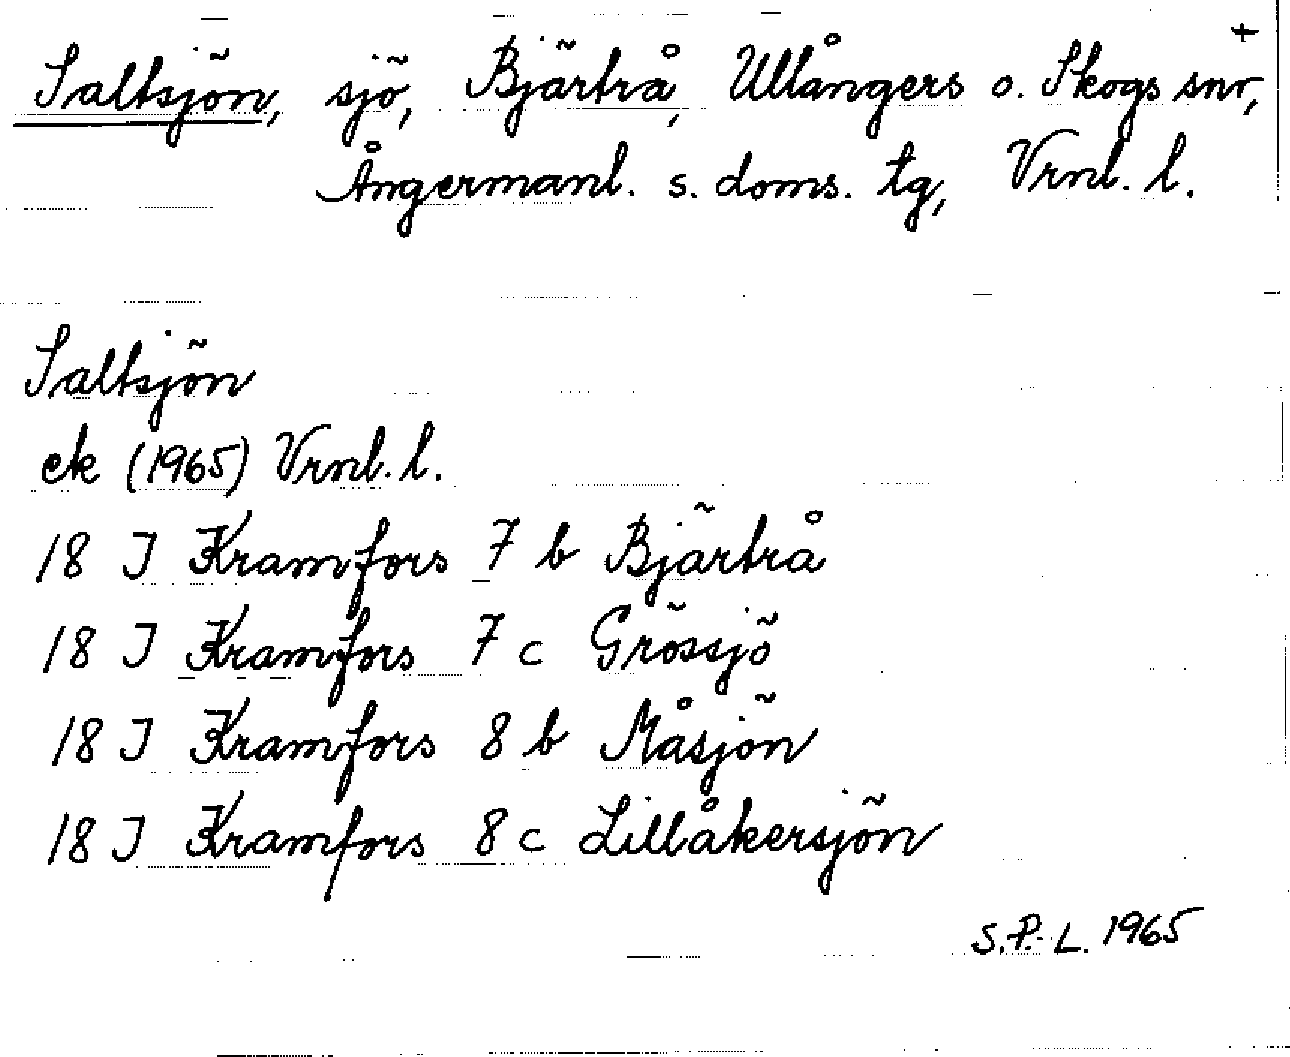 +
Saltsjön, sjö, Bjärtrå, Ullångers o. Skogs snr,
Ångermanl. s. doms. tg, Vrnl. l.
Saltsjön
ek (1965) Vrnl. l.
18 J Kramfors 7 b Bjärtrå
18 J Kramfors 7 c Grössjö
18 J Kramfors 8 b Måsjön
18 J Kramfors 8 c Lillåkersjön
S.P.L. 1965